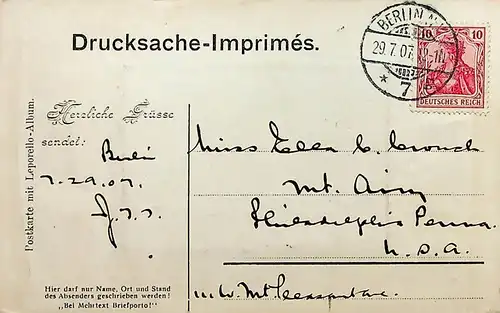 Drucksache-Imprimés.
BERLIN
29.7.07.
* 7
10 10
DEUTSCHES REICH
Postkarte mit Leporello-Album.
Herzliche Grüsse
sendet:
Berlin
7.29.07.
Miss Ella C. Crouch
Mt. Airy
Philadelphia Penna.
U.S.A.
Hier darf nur Name, Ort und Stand
des Absenders geschrieben werden!
„Bei Mehrtext Briefporto!"